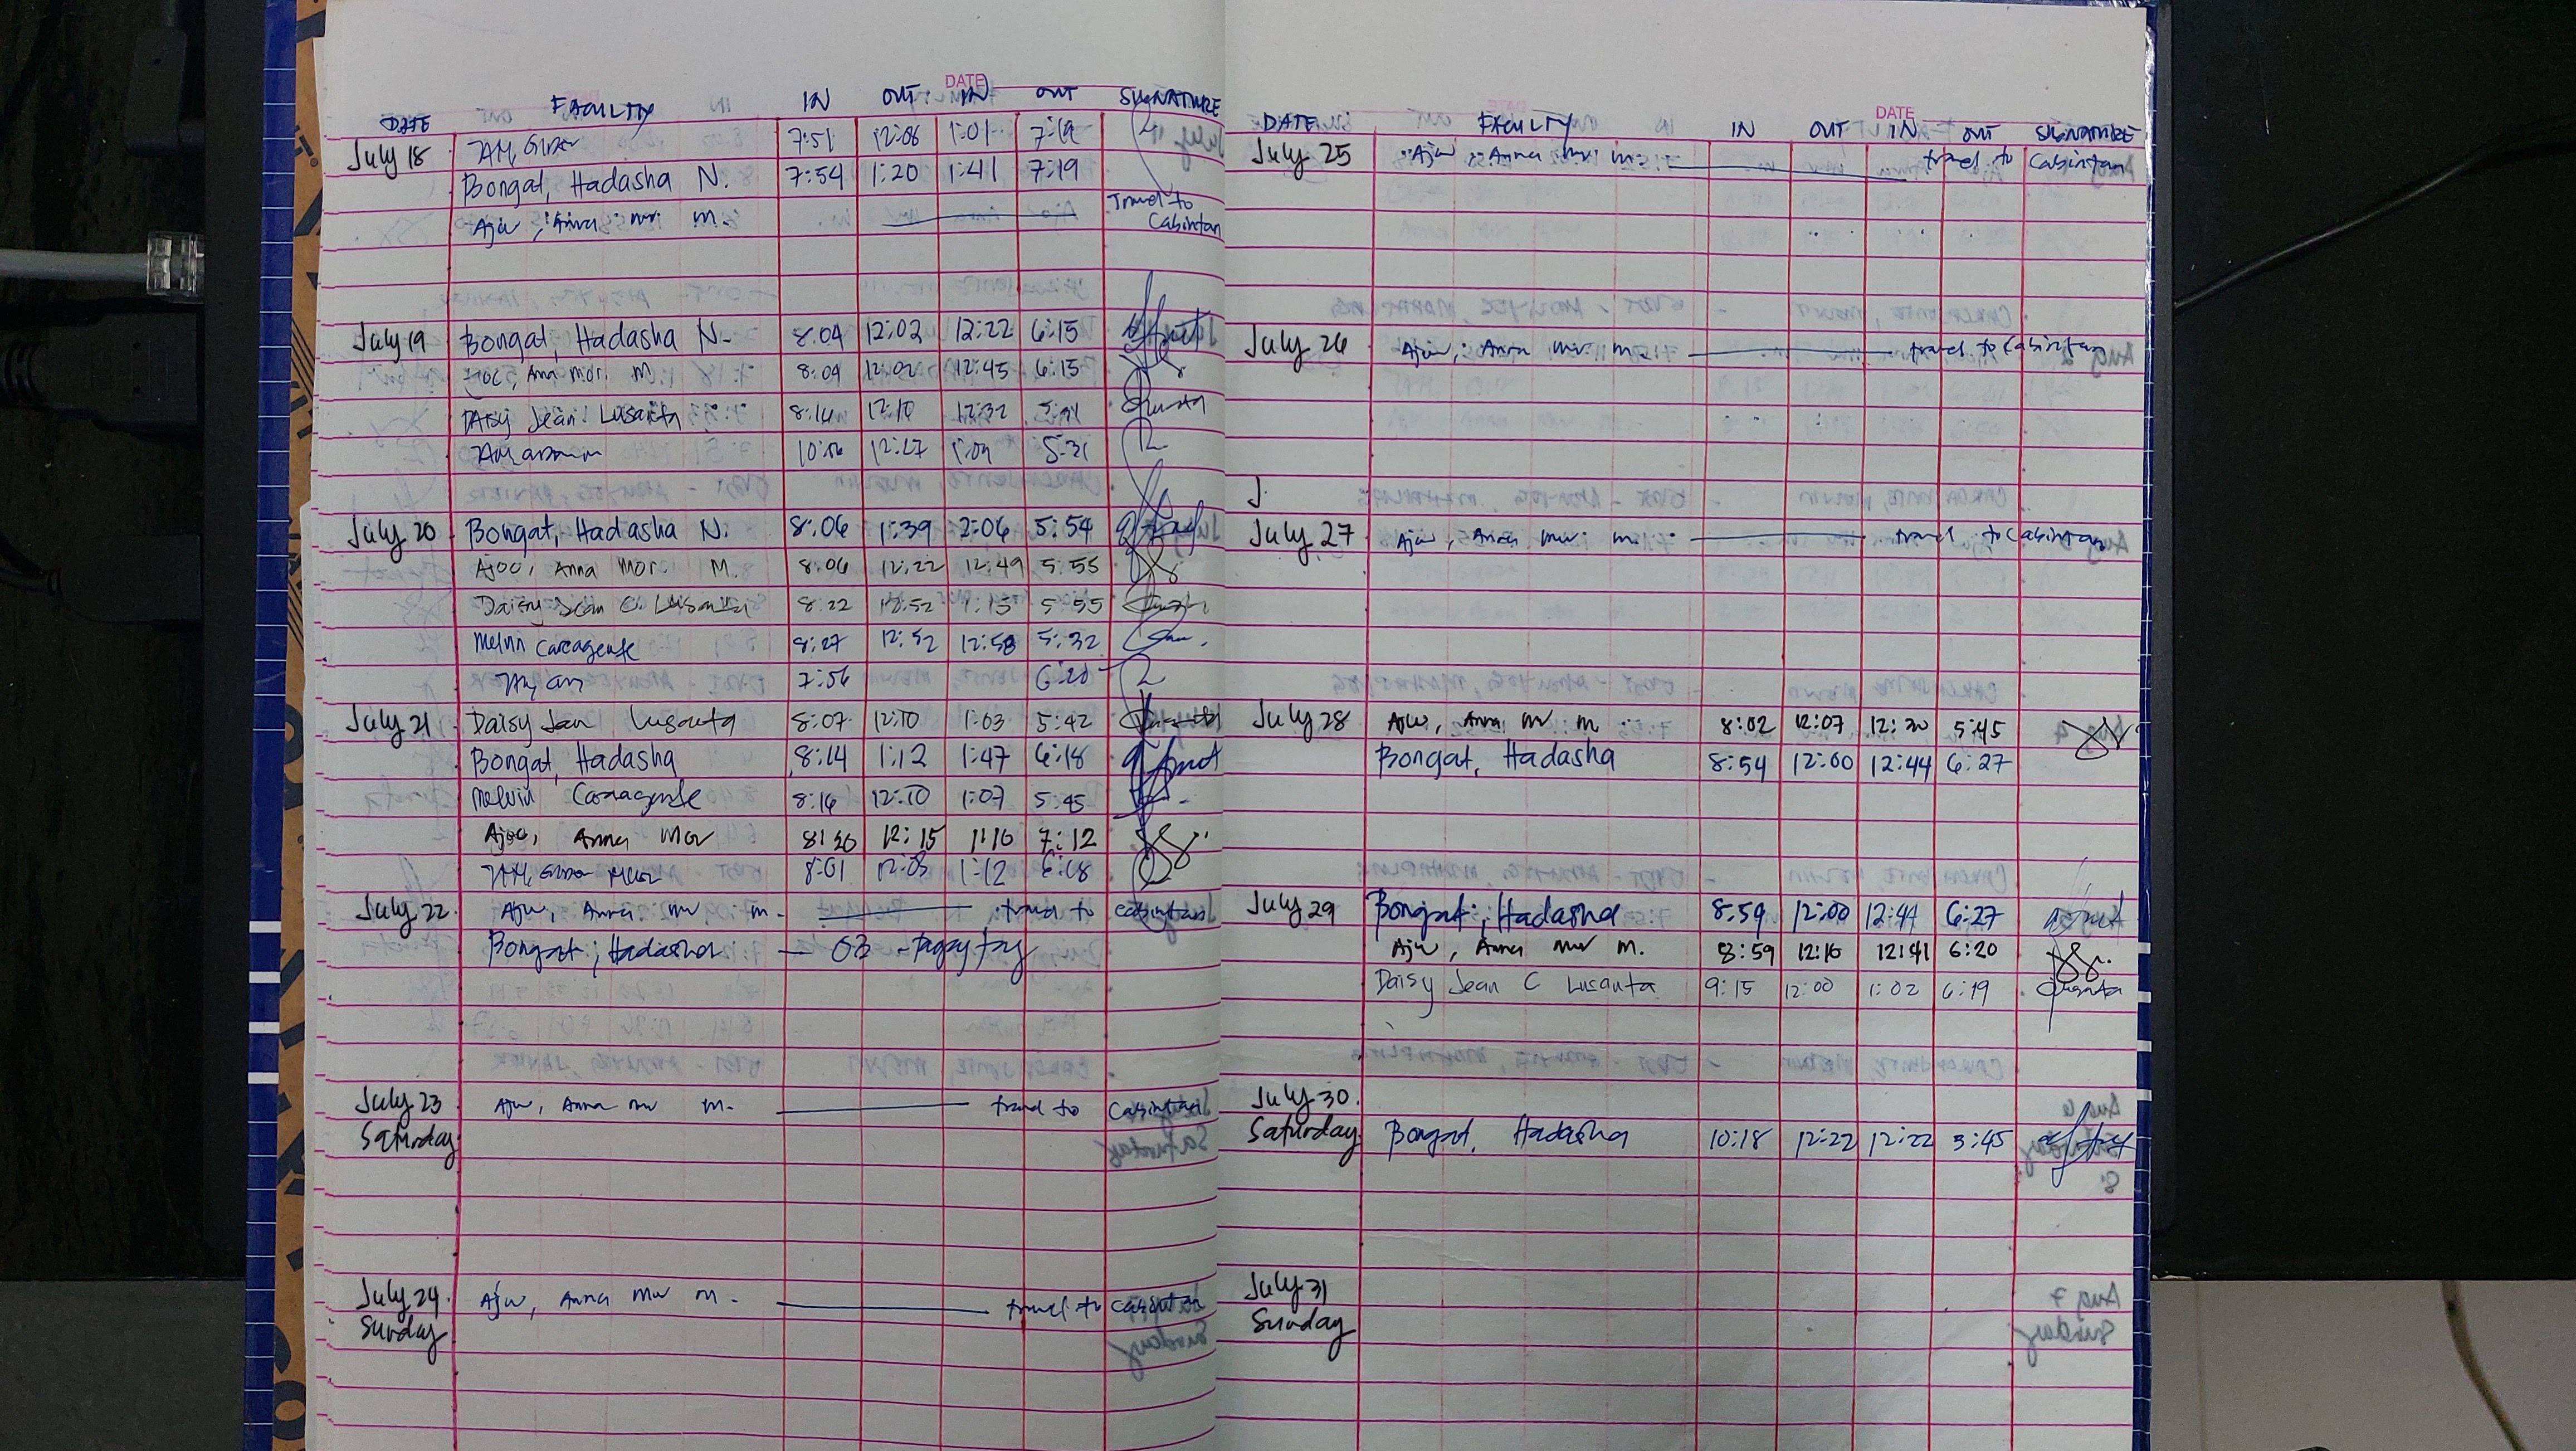 DATE FACULTY IN OUT IN OUT SIGNATURE
DATE
July 18 7:51 12:06 1:01 7:19
Bongat, Hadasha N. 7:54 1:20 1:41 7:19
Anna M. Travel to
Cabintan
July 19 Bongat, Hadasha N. 8:04 12:02 12:22 6:15
Anna Mor. M 8:04 12:02 12:45 6:15
Daisy Jean Lusanta 8:14 12:10 12:32
12:27 5:31
July 20 Bongat, Hadasha N. 8:06 1:39 2:06 5:54
Ajoc, Anna Mor. M. 8:06 12:22 12:49 5:55
Daisy Jean C. Lusanta 8:22 12:52 1:15 5:55
Melvin Carcagente 8:27 12:52 12:58 5:32
7:56 6:20
July 21 Daisy Jean Lusanta 8:07 12:10 1:03 5:42
Bongat, Hadasha 8:14 1:12 1:47 6:18
Melvin Carcagente 8:16 12:10 1:07 5:45
Ajoc, Anna Mor 8:20 12:15 1:10 7:12
8:01 12:03 1:12 6:18
July 22 Anna M. travel to Cabintan
Bongat, Hadasha - OB - Tagaytay
July 23 Anna M. travel to Cabintan
Saturday
July 24 Anna M. travel to Cabintan
Sunday
DATE
DATE FACULTY IN OUT IN OUT SIGNATURE
July 25 Anna M. travel to Cabintan
July 26 Anna M. travel to Cabintan
J
July 27 Anna M. travel to Cabintan
July 28 Anna M 8:02 12:07 12:30 5:45
Bongat, Hadasha 8:54 12:00 12:44 6:27
July 29 Bongat, Hadasha 8:59 12:00 12:44 6:27
Anna M. 8:59 12:10 12:41 6:20
Daisy Jean C Lusanta 9:15 12:00 1:02 6:19
July 30
Saturday Bongat, Hadasha 10:18 12:22 12:22 3:45
July 31
Sunday